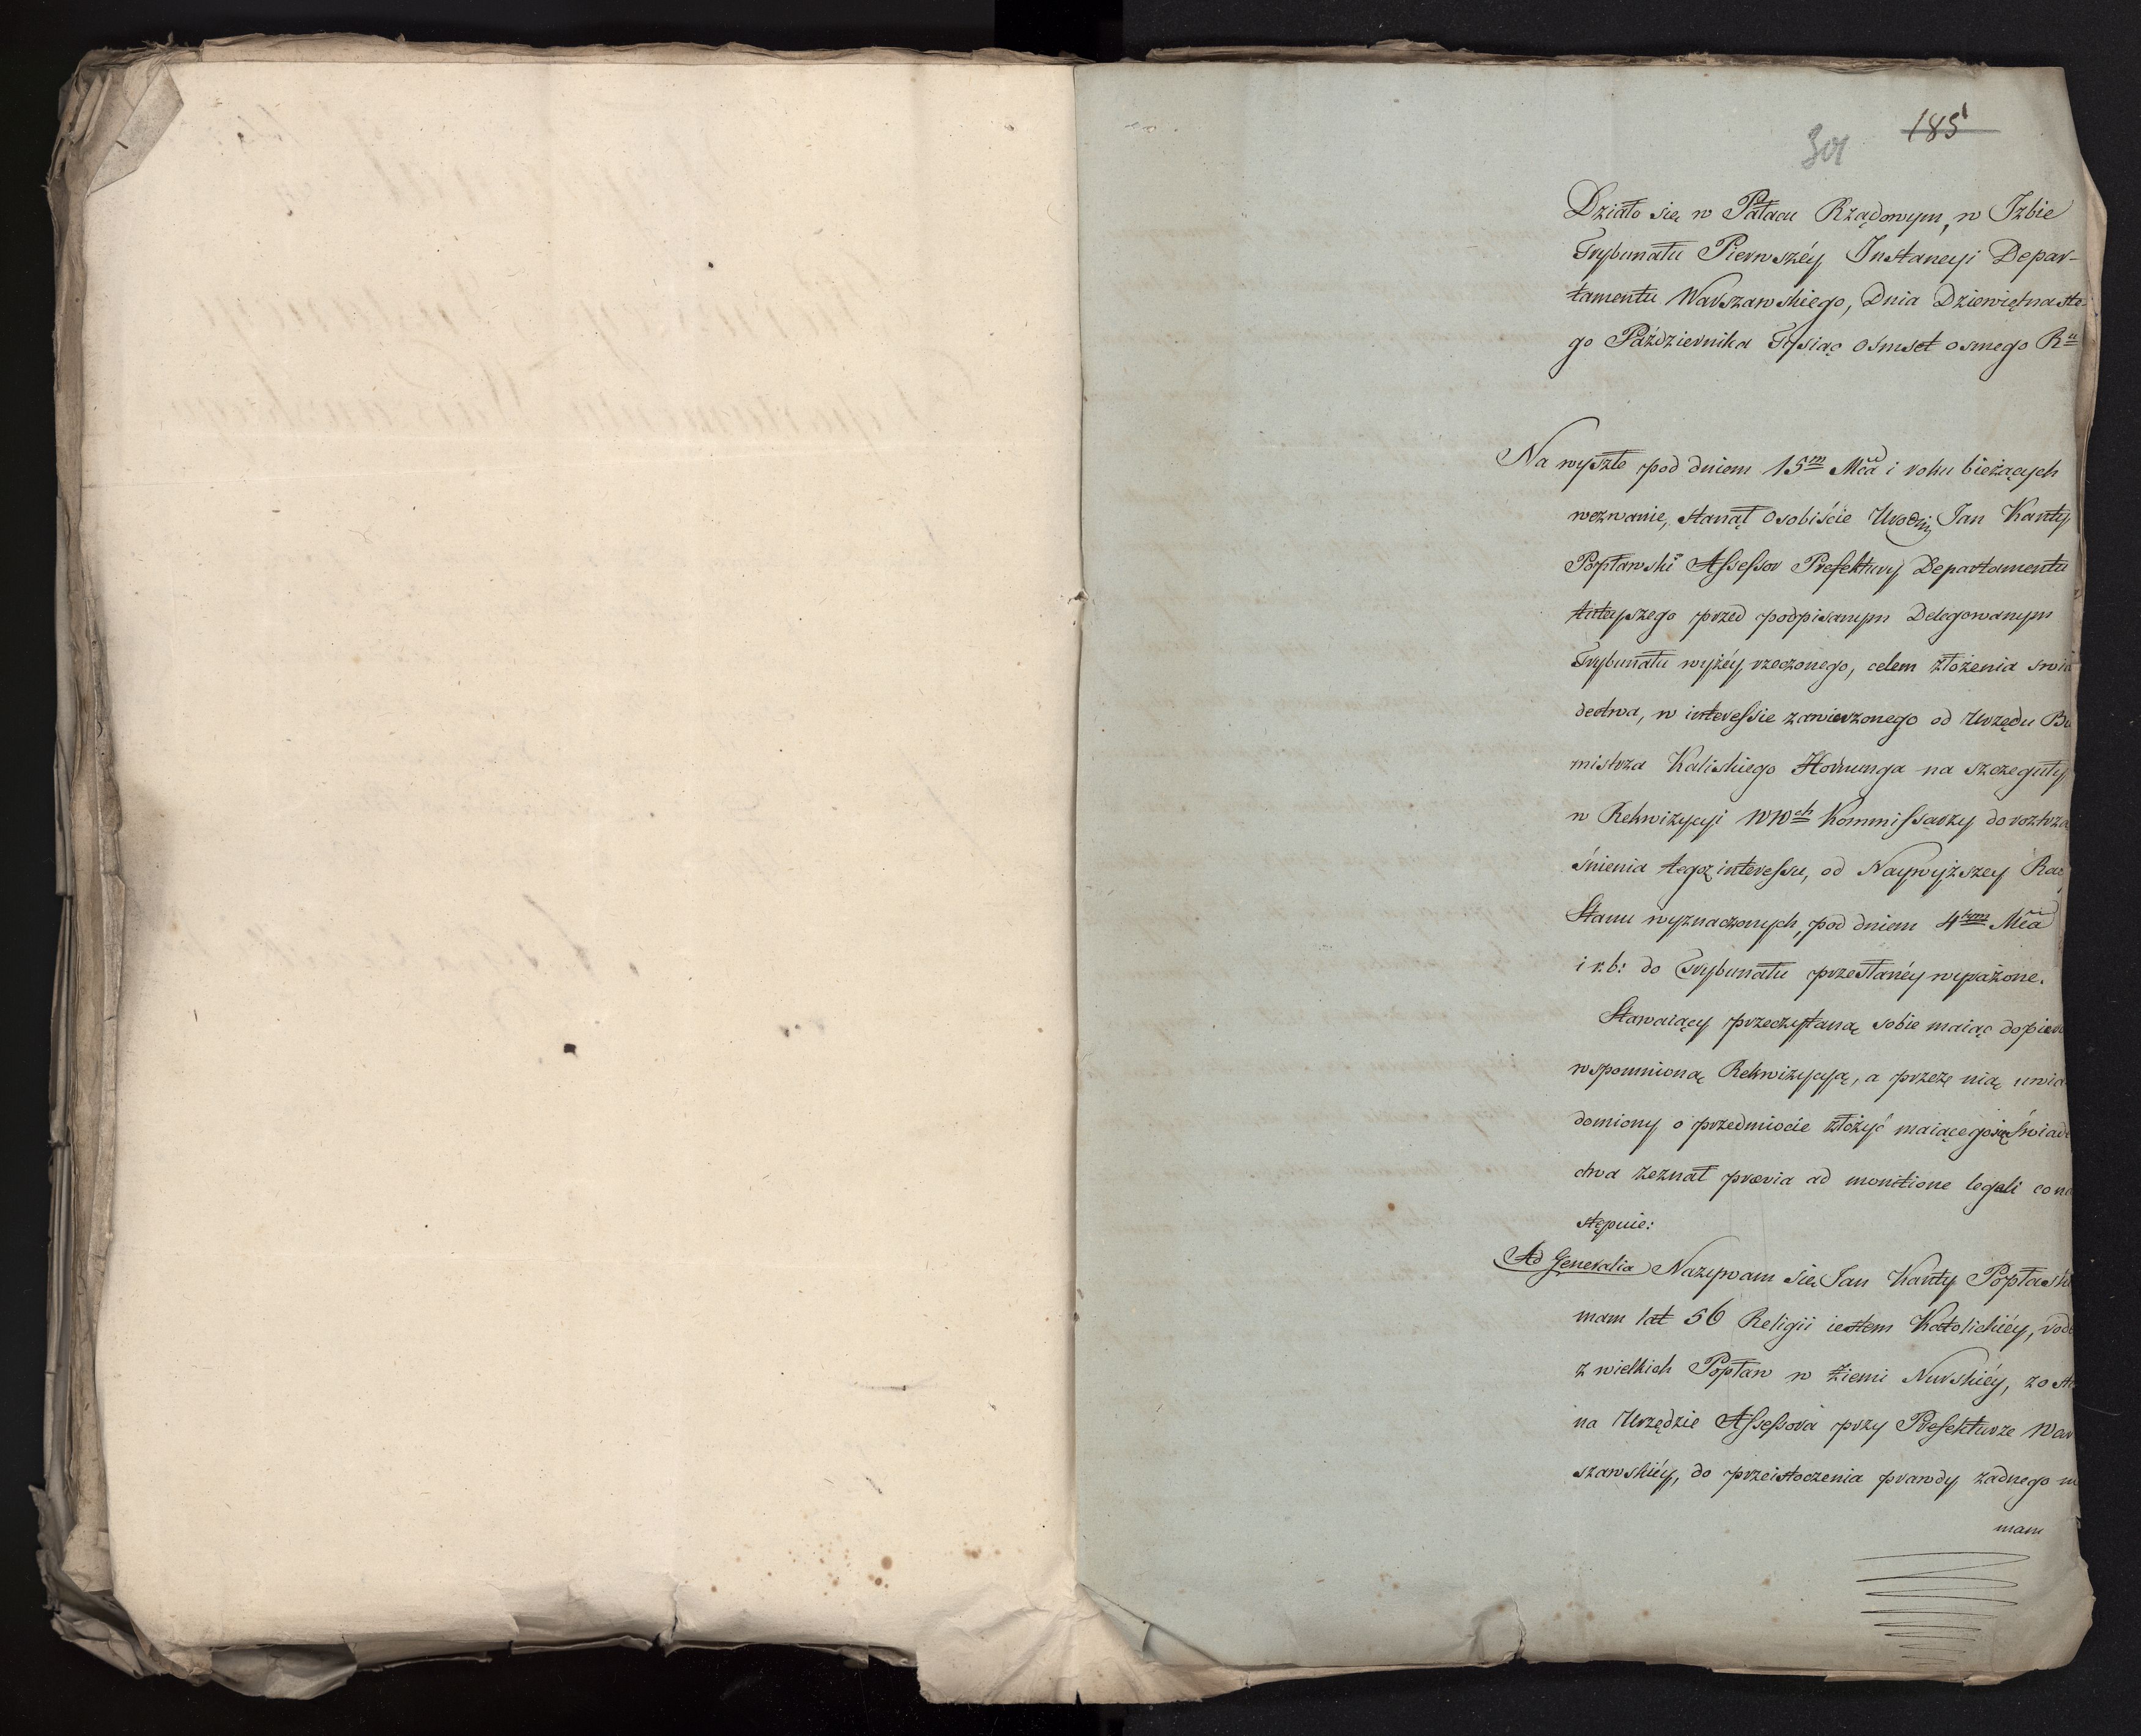 185
301
Działo się w Pałacu Rządowym, w Izbie
Trybunału Pierwszéy Instancyi Depar-
tamentu Warszawskiego, Dnia Dziewiętnaste-
go Października Tysiąc osmset osmego Rᵘ
Na wyszłe pod dniem 15ᵐ Mca i roku bieżących
wezwanie, stanął osobiście Urodzny Jan Kanty
Popławski Assessor Prefektury Departamentu
tuteyszego przed podpisanym Delegowanym
Trybunału wyżéy rzeczonego, celem złożenia swia
dectwa, w interessie zawierzonego od Urzędu Bu
mistrza Kaliskiego Hornunga na szczeguły
w Rekwizycyi WWᶜʰ Kommissarzy do roztrzą
śnienia tegoż interessu, od Naywyższey Rady
Stanu wyznaczonych, pod dniem 4ᵗʸᵐ Mca
i r:b: do Trybunału przesłanéy wyrażone.
Stawaiący przeczytaną sobie maiąc dopiero
wspomnioną Rekwizycyą, a przeze nią uwia
domiony o przedmiocie złożyć maiącego się świade
ctwa zeznał prævia ad monitione legali co na
stępuie:
Ad Generalia Nazywam się Jan Kanty Popłaski
mam lat 56 Religii iestem Katolickiéy, rode
z wielkich Popław w Ziemi Nurskiéy, zosta
na Urzędzie Assessora przy Prefekturze War
szawskiéy, do przeistoczenia prawdy żadnego ni
mam